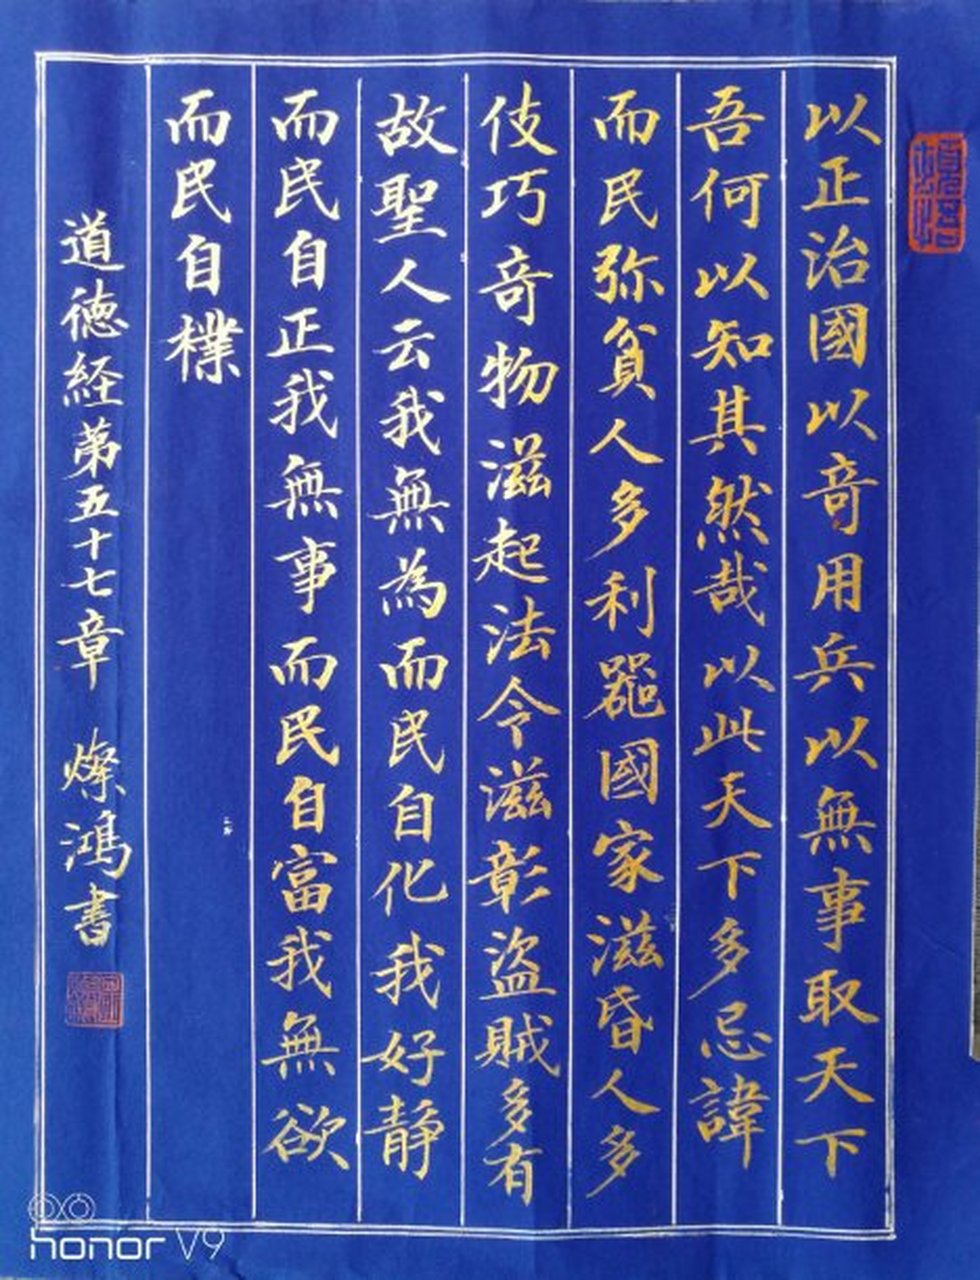 以正治國以奇用兵以無事取天下
吾何以知其然哉以此天下多忌諱
而民弥貧人多利器國家滋昏人多
伎巧奇物滋起法令滋彰盜賊多有
故聖人云我無為而民自化我好静
而民自正我無事而民自富我無欲
而民自樸
道徳経第五十七章 燦鴻書
honor V9